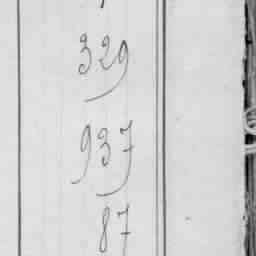 329
937
87